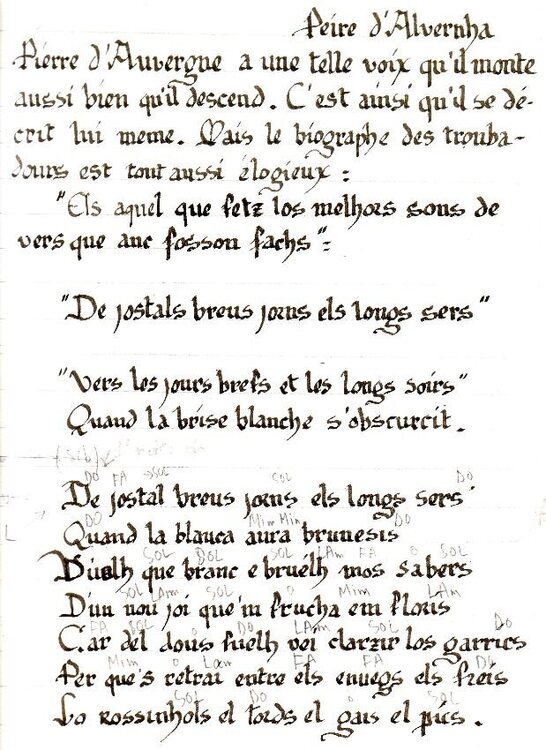 Peire d'Alvernha
Pierre d'Auvergne a une telle voix qu'il monte
aussi bien qu'il descend. C'est ainsi qu'il se dé-
crit lui meme. Mais le biographe des trouba-
dours est tout aussi élogieux :
"Els aquel que fetz los melhors sons de
vers que anc fosson fachs":
"De jostals breus jorns els longs sers"
"Vers les jours brefs et les longs soirs"
Quand la brise blanche s'obscurcit.
DO FA SOL SOL DO
De jostal breus jorns els longs sers
DO Mim Mim DO
Quand la blauca aura brunesis
SOL DOL SOL LAm FA SOL
Duelh que branc e bruélh mos sabers
SOL LAm SOL Mim LAm
D'un nou joi que'm frucha em floris
FA SOL DO LAm SOL DO
Car del dous fuelh vei clarzir los garrics
Mim Lam FA FA DO
Per que's retrai entre els enuegs els freis
SOL DO SOL
Lo rossinhols el tords el gais el pics.